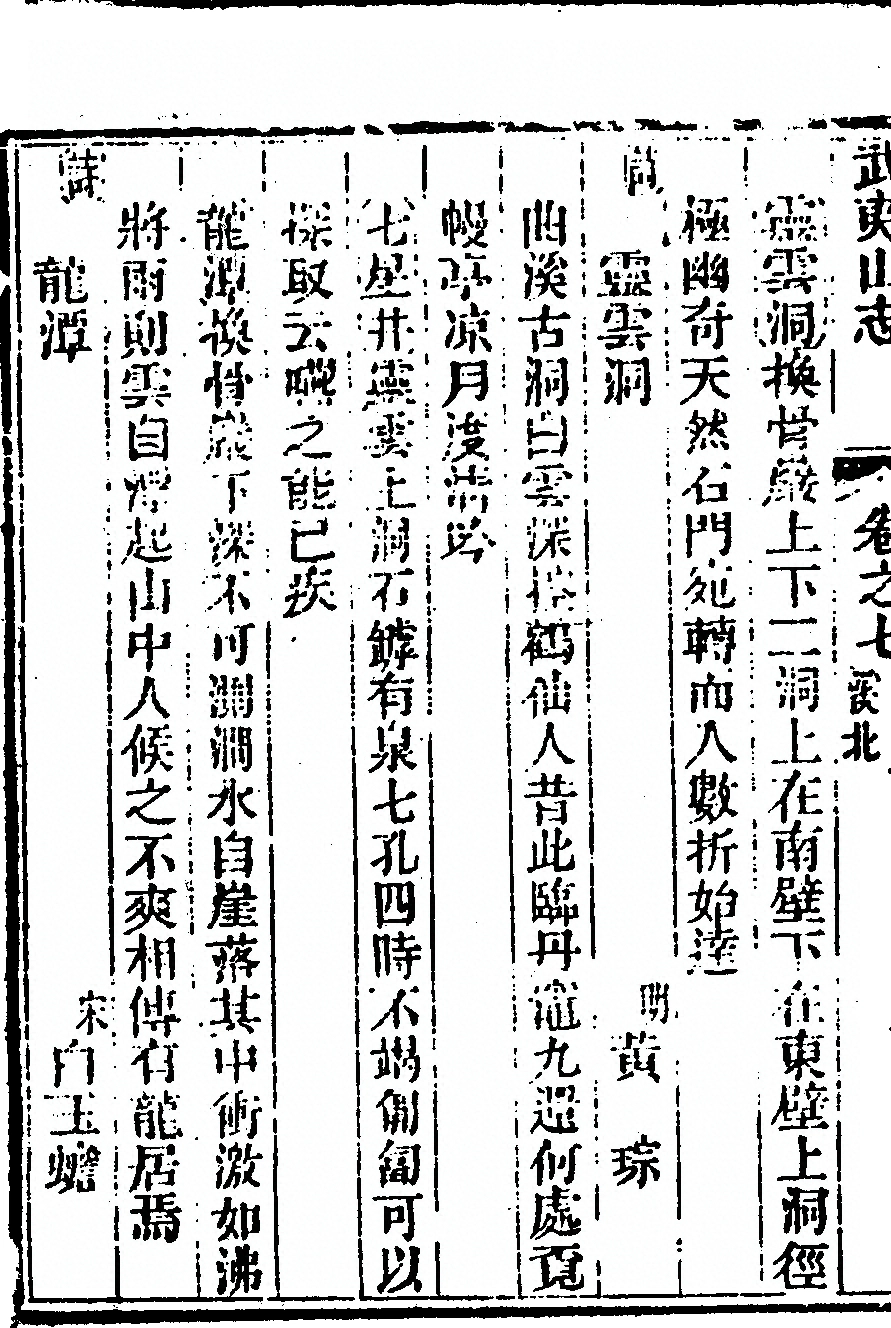 武夷山志 卷之七 溪北
靈雲洞換骨巖上下二洞上在南壁下在東壁上洞徑
極幽奇天然石門宛轉而入數折始達
詩 靈雲洞 明 黃 琮
曲溪古洞白雲深控鶴仙人昔此臨丹竈九還何處覓
幔亭凉月度清吟
七星井靈雲上洞石罅有泉七孔四時不竭側匐可以
探取云嚥之能已疾
龍潭換骨巖下深不可測澗水自崖落其中衝激如沸
將雨則雲自潭起山中人候之不爽相傳有龍居焉
詩 龍潭 宋 白玉蟾